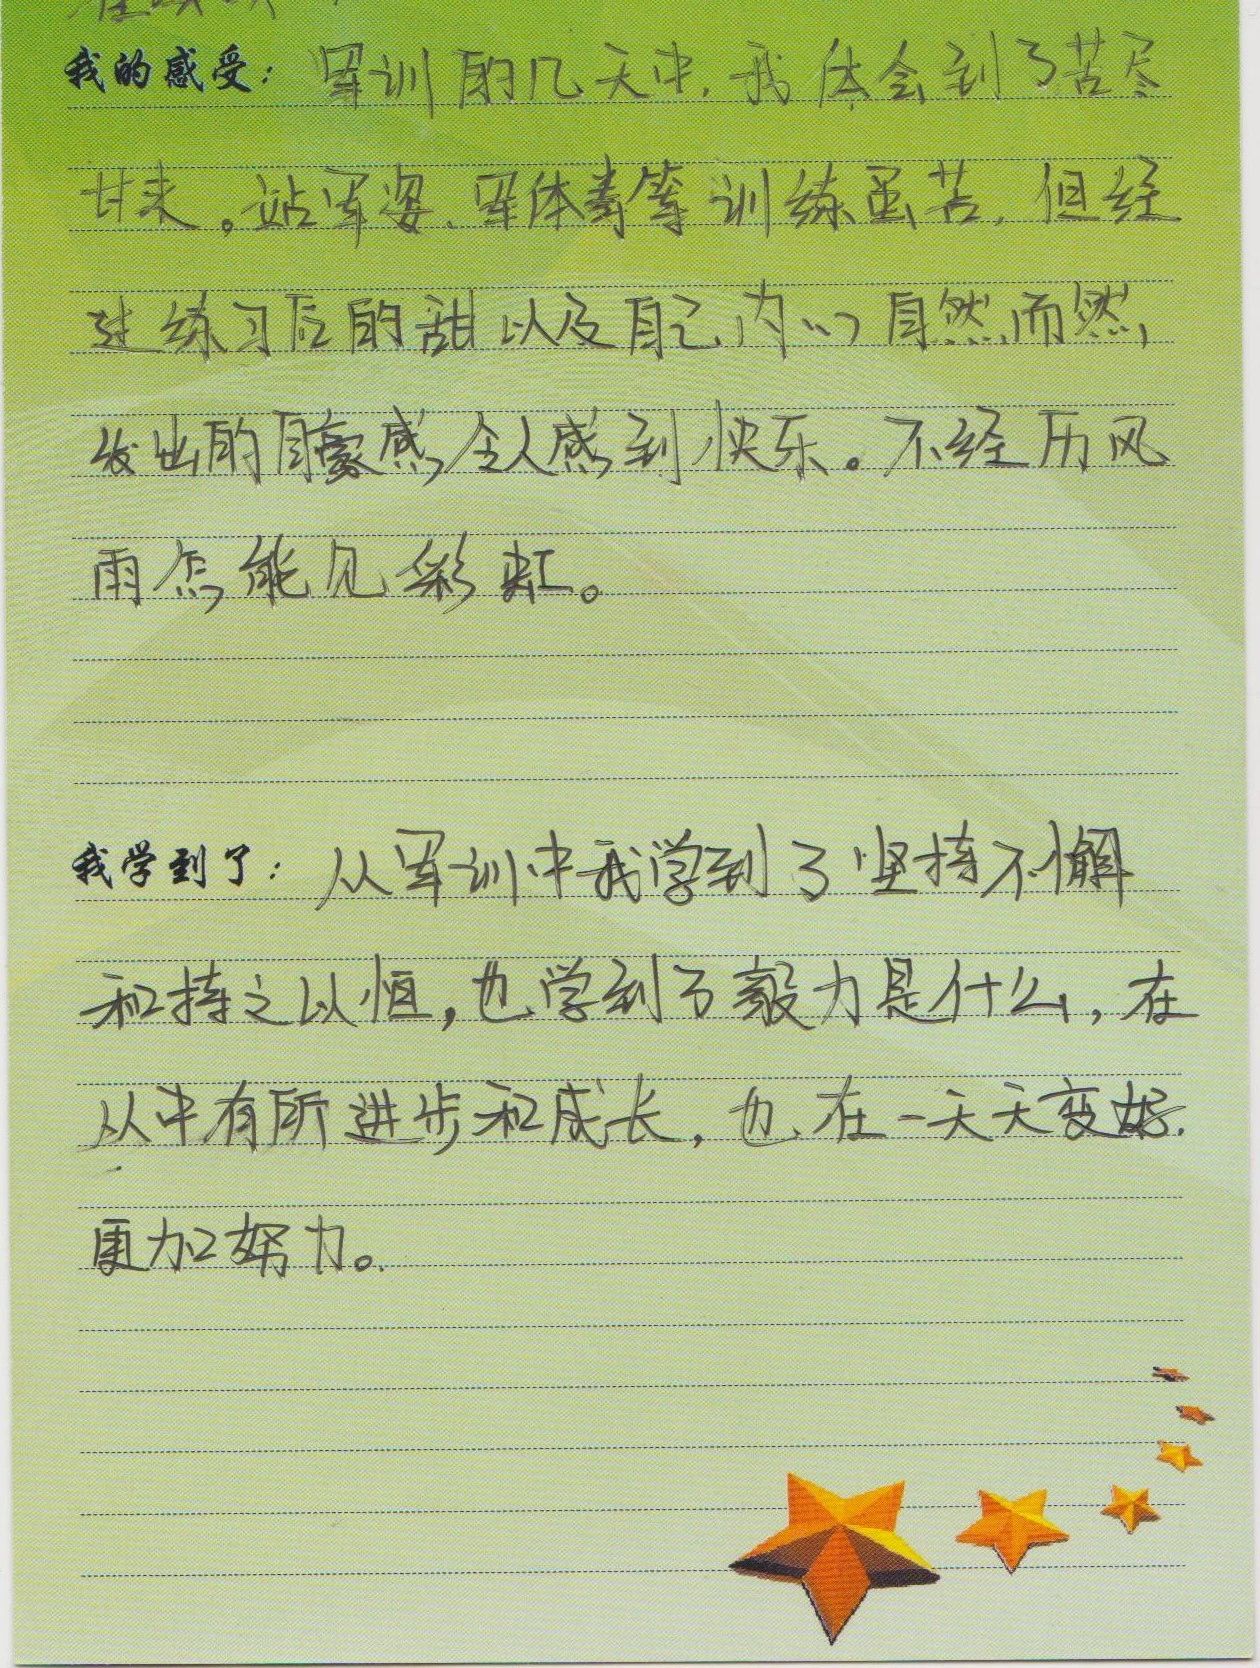 我的感受：军训的几天中，我体会到了苦尽
甘来。站军姿、军体拳等训练虽苦，但经
过练习后的甜以及自己内心自然而然
发出的自豪感，令人感到快乐。不经历风
雨怎能见彩虹。
我学到了：从军训中我学到了坚持不懈
和持之以恒，也学到了毅力是什么，在
从中有所进步和成长，也在一天天变好，
更加努力。